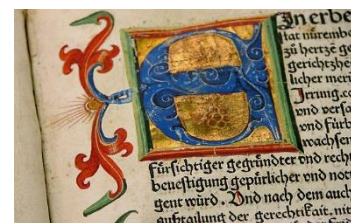 In erbe
tat nüremb
zů hertzē ge
gerichtzhe
licher meri
Irrung.
vnd verso
vnd fürb
wachsen
fürsichtiger gegründter vnd recht
beuestigung gepürlicher vnd not
gent würd. Vnd nach dem auch
außtailung der gerechtikait. mit